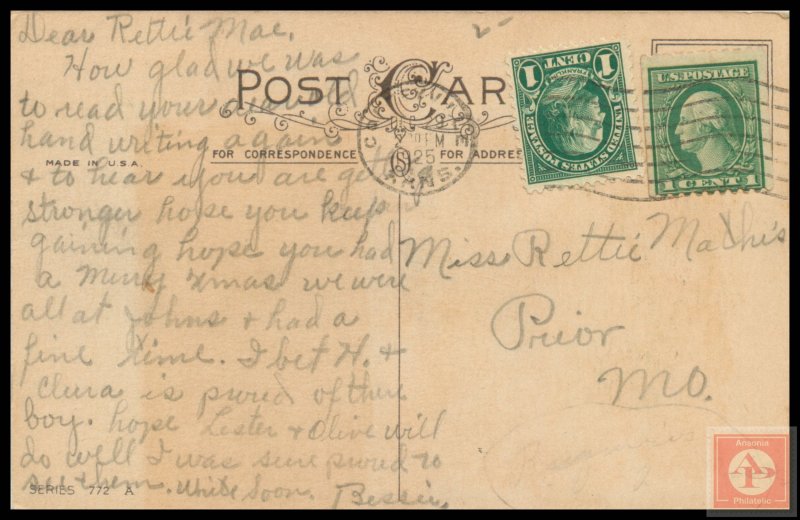 Dear Rettie Mae,
How glad we was
to read your
hand writing again
& to hear you are
stronger hope you keep
gaining hope you had
a Merry Xmas we were
all at Johns & had a
fine time. I bet H. &
is pured of there
boy. hope Lester & Olive will
do well I was sure pured to
see them. Write Soon. Bessie,
POST CARD
FOR CORRESPONDENCE
FOR ADDRESS
MADE IN U.S.A.
SERIES 772 A
2-
25
KANS.
UNITED STATES POSTAGE
FRANKLIN
1 CENT 1
U.S. POSTAGE
1 CENT 1
Miss Rettie Mathis
Prior
Mo.
Ansonia
AP
Philatelic